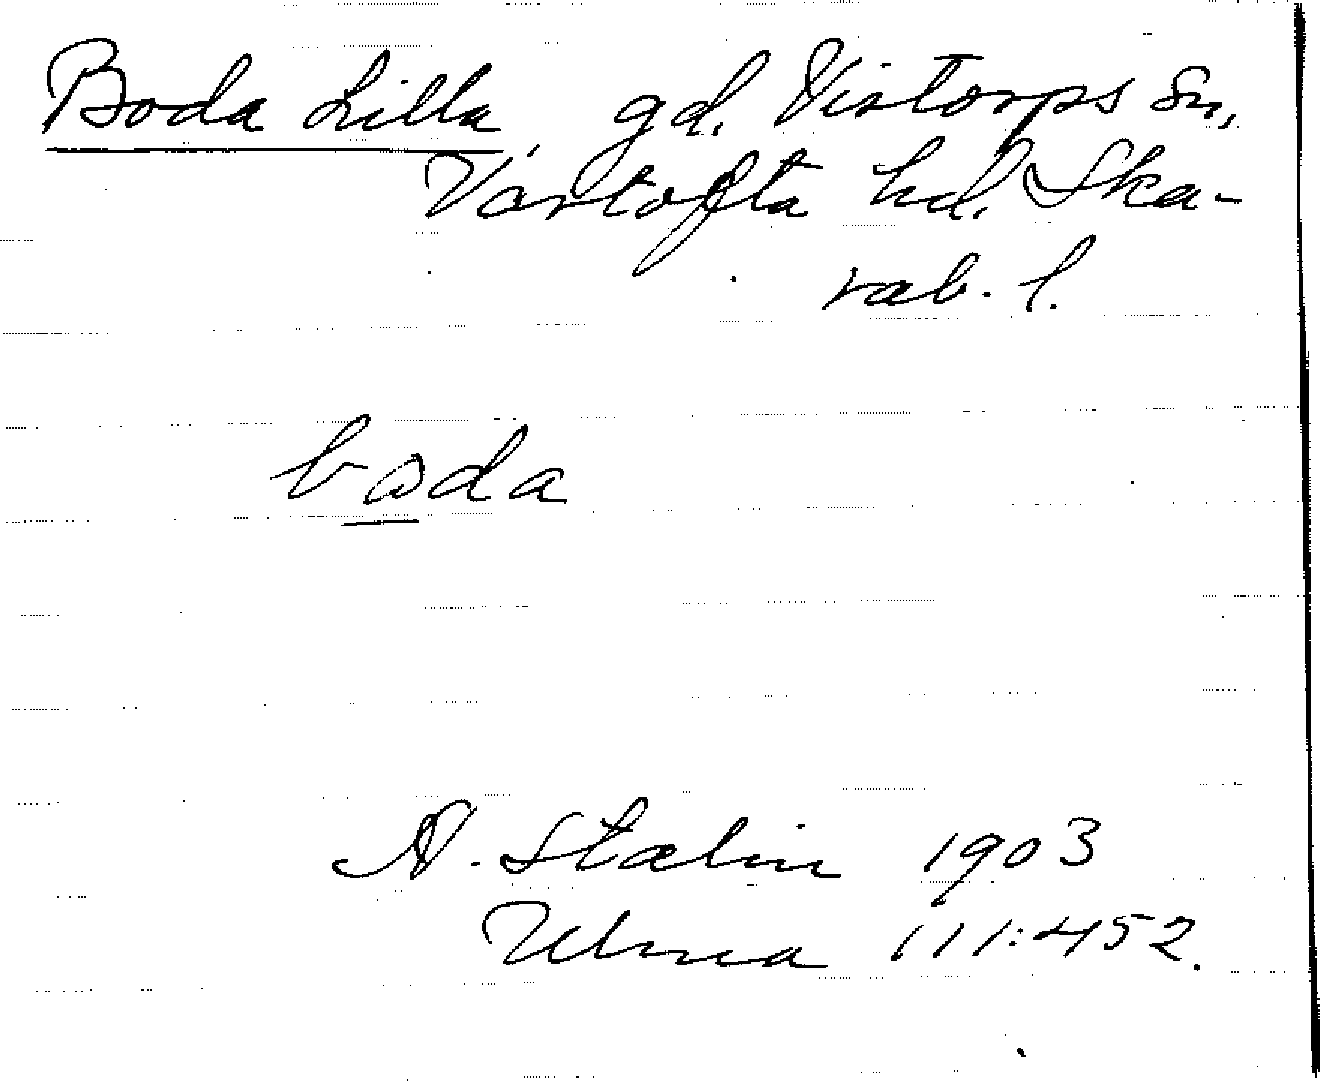 Boda Lilla, gd. Vistorps sn,
Vartofta hd. Ska-
rab. l.
boda
A. Stalin 1903
Ulma 111:452.